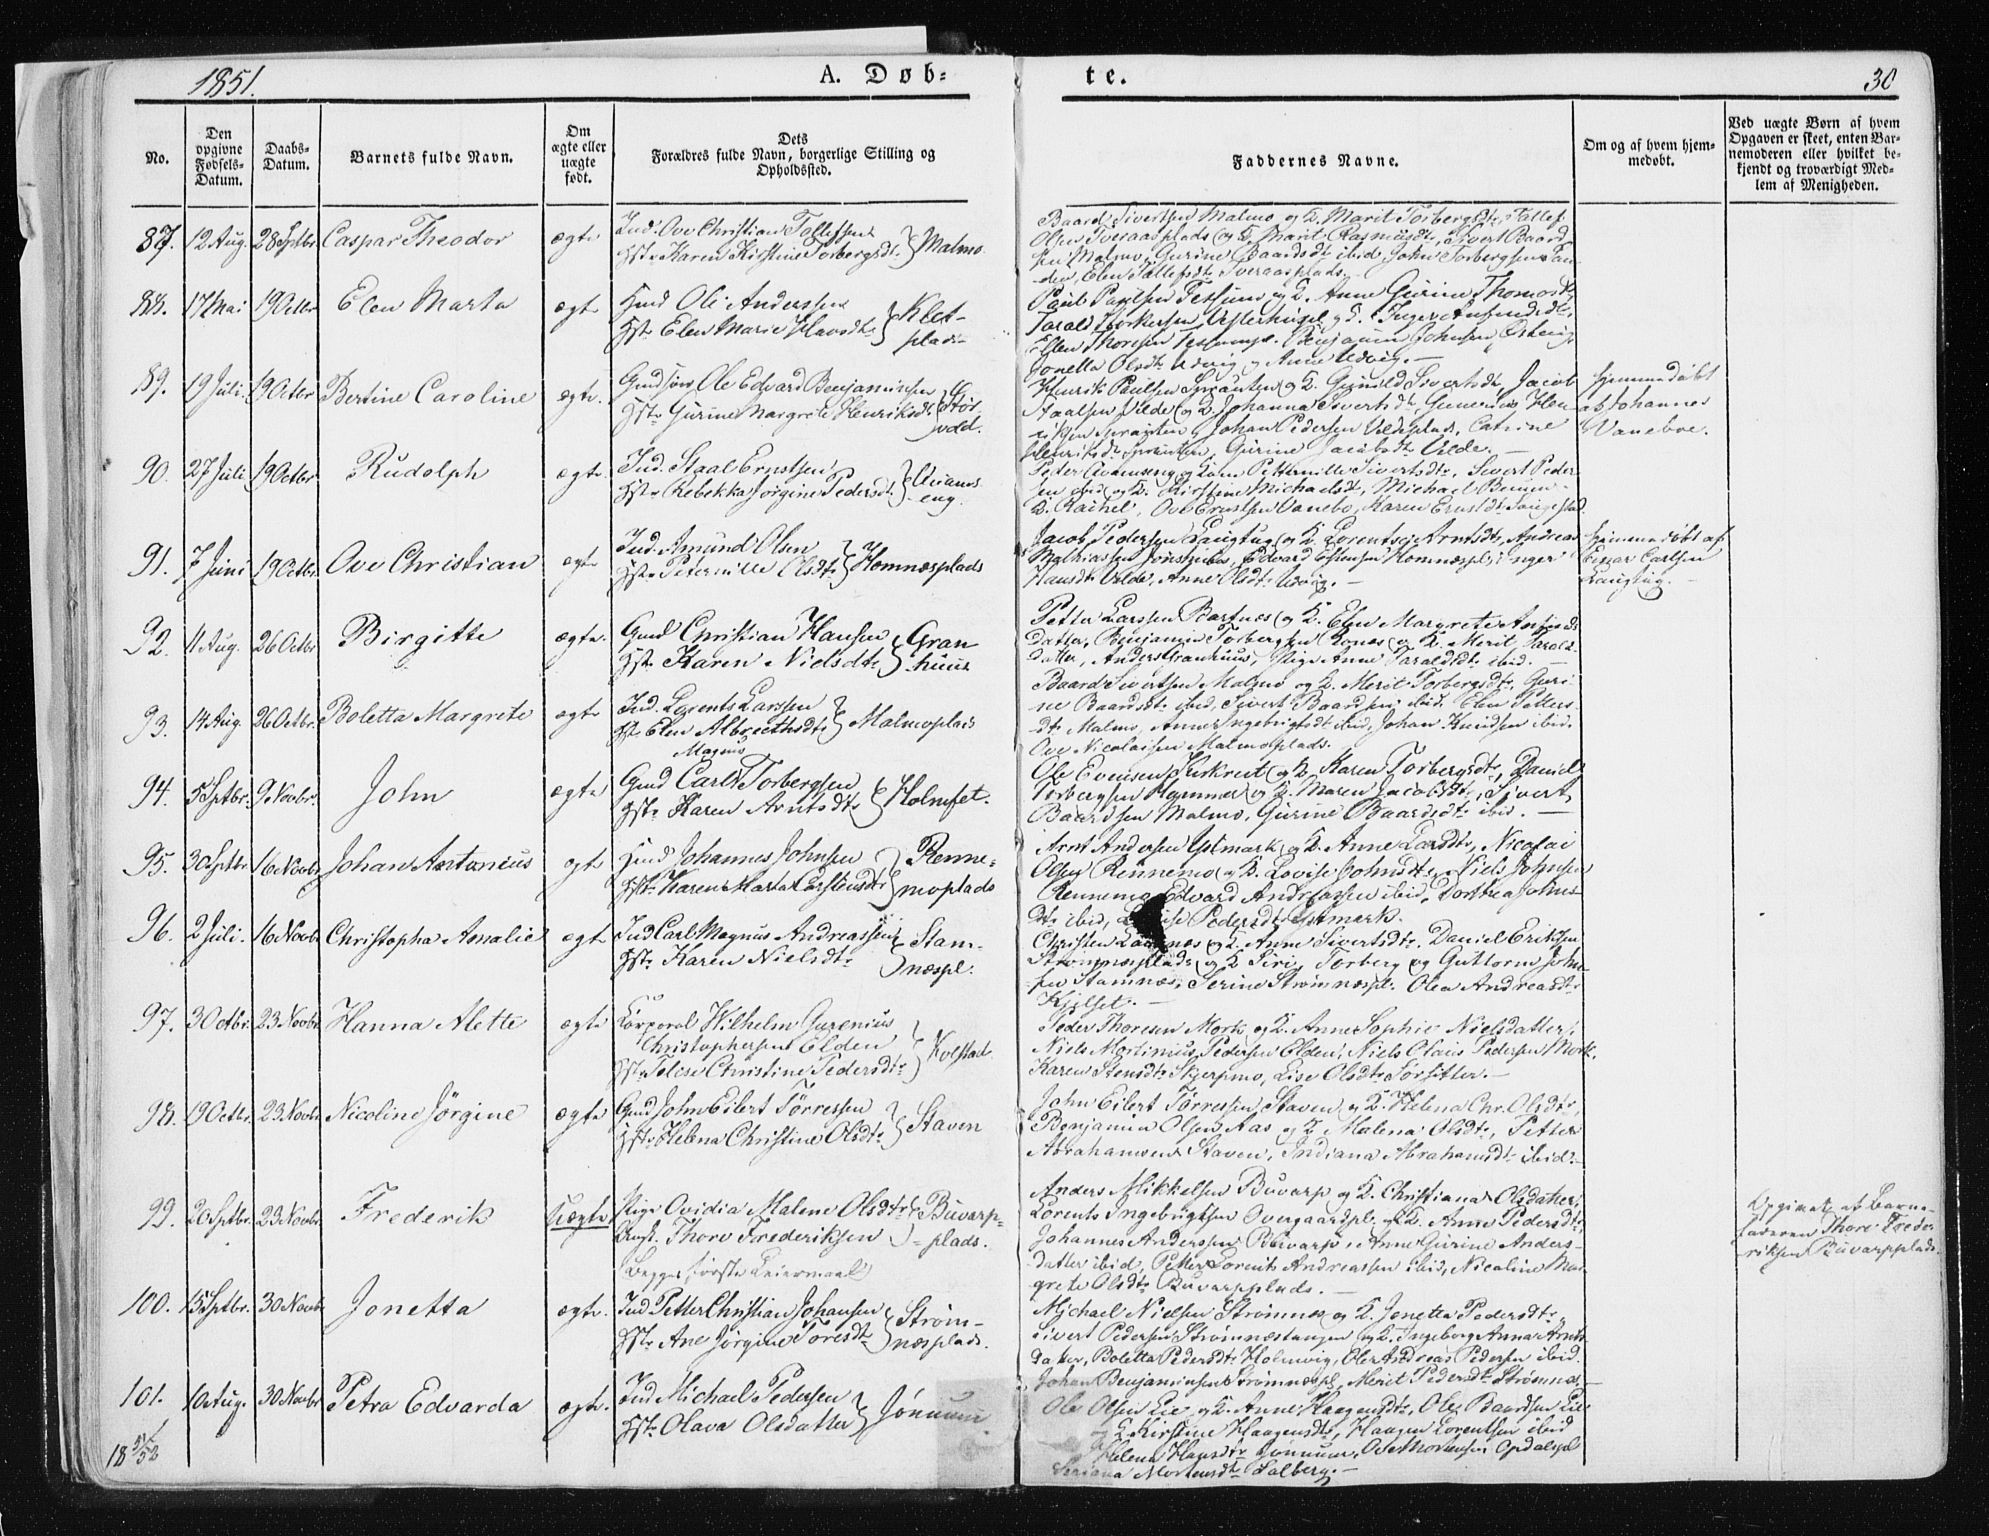 1851.
A. Døb-
te.
30
No.
Den opgivne Fødsels-Datum.
Daabs-Datum.
Barnets fulde Navn.
Om ægte eller uægte født.
Dets Forældres fulde Navn, borgerlige Stilling og Opholdssted.
Faddernes Navne.
Om og af hvem hjem-medøbt.
Ved uægte Børn af hvem Opgaven er skeet, enten Bar-nemoderen eller hvilket be-kjendt og troværdigt Med-lem af Menigheden.
87. 12 Aug. 28 Sptbr. Caspar Theodor ægte Ind. Ove Christian Tollefsen
Hst. Karen Kirstine Torbergsdtr. Malmo.
Baard Sivertsen Malmo og K. Marit Torbergsdtr, Tollef
Olsen Tveraasplads og K. Marit Rasmusdtr, Sivert Baard
sen Malmo, Gurine Baardsdtr ibid, John Torbergsen
Elen Tollefsdtr Tveraasplads.
88. 17 Mai 19 Octbr Elen Marta ægte Hmd Ole Anderssen
Hst. Elen Marie Klet-
plads
Paul Paulsen og K. Anne Gurine Thomasdtr
Benjamin Johnsen
Jonetta Olsdtr Udvig og Anne Udvig.
89. 19 Juli 19 Octbr Bertine Caroline ægte. Gmd Ole Edvard Benjaminsen
Hst. Gurine Margrete Henriksdtr
Henrik Paulsen Sprauten og K. Gunild Sivertsdtr, Jacob
Staalsen Velde og K. Johanna Sivertsdtr,
Johan Pedersen Veldeplads, Catrine
Henriksdtr Sprauten, Gurine Jacobsdtr Velde.
Hjemmedøbt
af Johannes
Vaneboe.
90. 27 Juli 19 Octbr Rudolph ægte Ind. Staal Ernstsen
Hst. Rebekka Jørgine Pedersdtr
eng.
Peder og Kone Petternille Sivertsdtr, Sivert Peder-
sen ibid og K. Kirstine Michaelsdtr, Michael
K. Rachel, Ove Ernstsen Vanebo, Karen Ernstdtr
91. 7 Juni 19 Octbr. Ove Christian ægte Ind. Amund Olsen
Hst. Peternille Olsdtr Homnæsplads
Jacob Pedersen Langtug og K. Lorentse Arntsdtr, Andreas
Mathiassen Edvard Homnæspl. Inger
Hansdtr Velde, Anne Olsdtr Udvig.
Hjemmedøbt af
Einar Carlsen
Langtug.
92. 11 Aug. 26 Octbr Birgitte ægte. Gmd Christian Hansen
Hst. Karen Nielsdtr Gran
huus
Petter Larssen Bartnes og K. Elen Margrete
datter, Benjamin Torbergsen og K. Merit Tarald
datter, Anders Granhuus, Pige Anne Taraldsdtr ibid.
93. 14 Aug. 26 Octbr. Boletta Margrete ægte Ind. Lorents Larssen
Hst. Elen Albrecthsdtr Malmoplads
Baard Sivertsen Malmo og K. Merit Torbergsdtr, Guri-
ne Baardsdtr ibid, Sivert Baardsen ibid. Elen Petters
dtr Malmo, Anne Ingebrigtsdtr ibid, Johan Knudsen ibid.
Ove Nicolaisen Malmoplads.
94. 5 Sptbr. 9 Novbr. John ægte Magnus
Gmd Carl Torbergsen
Hst. Karen Arntsdtr Holmset.
Ole Evensen og K. Karen Torbergsdtr, Daniel
Torbergsen Hammer og K. Maren Jacobsdtr, Sivert
Baardsen Malmo, Gurine Baardsdtr ibid.
95. 30 Sptbr 16 Novbr Johan Antonius ægte Hmd Johannes Johnsen
Hst. Karen Marta Carstensdtr Renne-
moplads
Arnt Andersen Ystmark og K. Anne Larsdtr, Nicolai
Olsen Rennemo og K. Lovise Johnsdtr, Niels Johnsen
Rennemo, Edvard Andreassen ibid, Dorthea Johns
dtr ibid, Pedersdtr Ystmark.
96. 2 Juli. 16 Novbr Christopha Amalie ægte Ind Carl Magnus Andreassen
Hst. Karen Nielsdtr Stam-
næspl.
Christen og K. Anne Sivertsdtr. Daniel Eriksen
Strømnæsplads og K. Siri, Torberg og Guttorm John-
sen Stamnæs, Serine Strømnæspl. Olea Andreasdtr
Kjelset.
97. 3 Octbr. 23 Novbr. Hanna Alette ægte Corporal Wilhelm Gurenius
Christophersen Elden
Hst. Felise Christine Pedersdtr Kolstad.
Peder Thoresen Mork og K. Anne Sophie Nielsdatter,
Niels Mortinius Pedersen Elden, Niels Olaus Pedersen Mork.
Karen Stensdtr Skjerpmo, Lise Olsdtr Sørsitter.
98. 19 Octbr. 23 Novbr Nicoline Jørgine ægte Gmd John Eilert Tørressen
Hst. Helena Christine Olsdtr Staven
John Eilert Tørressen Staven og K. Helena Chr. Olsdtr,
Benjamin Olsen Aas og K Malena Olsdtr, Petter
Abrahamsen Staven, Indiana Abrahamsdtr ibid.
99. 20 Sptbr. 23 Novbr. Frederik Uægte Pige Ovidia Malene Olsdtr Buvarp-
Ungk. Thore Frederiksen plads.
Begges første Leiermaal
Anders Mikkelsen Buvarp og K. Christiana Olsdatter,
Lorents Ingebrigtsen Overgaardspl. og K. Anne Pedersdtr
Johannes Anderssen Buvarp, Anne Gurine Anders-
datter ibid, Petter Lorents Andreassen ibid, Nicoline Mar-
grete Olsdtr Buvarpplads.
Opgivet af Barne-
faderen Thore Frede-
riksen Buvarpplads.
100. 15 Sptbr. 30 Novbr Jonetta ægte. Ind Petter Christian Johansen
Hst. Ane Jørgine Toresdtr Strøm-
næsplads.
Michael Nielsen Strømnæs og K. Jonetta Pedersdtr,
Sivert Pedersen Strømnæstangen og K. Ingeborg Anna Arnts
datter, Boletta Pedersdtr Holmvig, Ole Andreas Pedersen ibid.
Johan Benjaminsen Strømnæspl, Merit Pedersdtr Strømnæs.
101. 10 Aug. 30 Novbr Petra Edvarda ægte. Ind Michael Pedersen
Hst. Olava Olsdatter Jønnum
Ole Olsen Lie og K. Anne Haagensdtr, Ole Baardsen Lie
og K. Kirstine Haagensdtr, Haagen Lorentsen ibid
Helena Hansdtr Jønnum, Ode Mortensen Opdalspl
Seriana Mortensdtr Salberg.
18 51/52